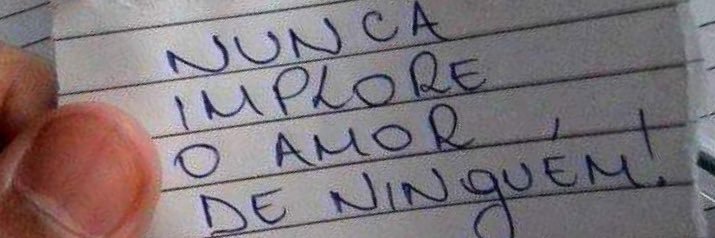 NUNCA
IMPLORE
O AMOR
DE NINguÉM!